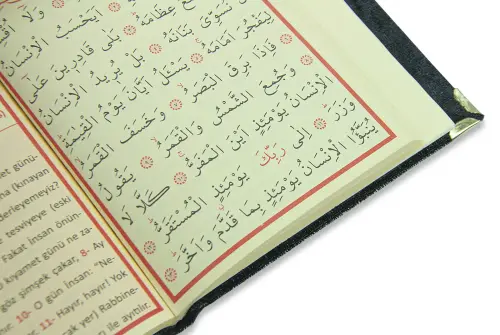 وَلَا
اَيَحْسَبُ الْاِنْسَانُ
عِظَامَهُ بَلٰى قَادِرِينَ عَلٰى
نُسَوِّىَ بَنَانَهُ بَلْ يُرِيدُ الْاِنْسَانُ
لِيَفْجُرَ اَمَامَهُ يَسْـَٔلُ اَيَّانَ يَوْمُ الْقِيٰمَةِ
فَاِذَا بَرِقَ الْبَصَرُ وَخَسَفَ الْقَمَرُ
وَجُمِعَ الشَّمْسُ وَالْقَمَرُ يَقُولُ
الْاِنْسَانُ يَوْمَئِذٍ اَيْنَ الْمَفَرُّ كَلَّا لَا
وَزَرَ اِلٰى رَبِّكَ يَوْمَئِذٍ الْمُسْتَقَرُّ
يُنَبَّؤُا الْاِنْسَانُ يَوْمَئِذٍ بِمَا قَدَّمَ وَاَخَّرَ
met günü-
na (kınayan
derleyemeyiz?
tesviyeye (eski
Fakat insan önün-
O kıyamet günü ne za-
göz şimşek çakar, 8- Ay
O gün insan: "Ne-
10- 11- Hayır, hayır! Yok
yer) Rabbine-
ile ayıtlır.